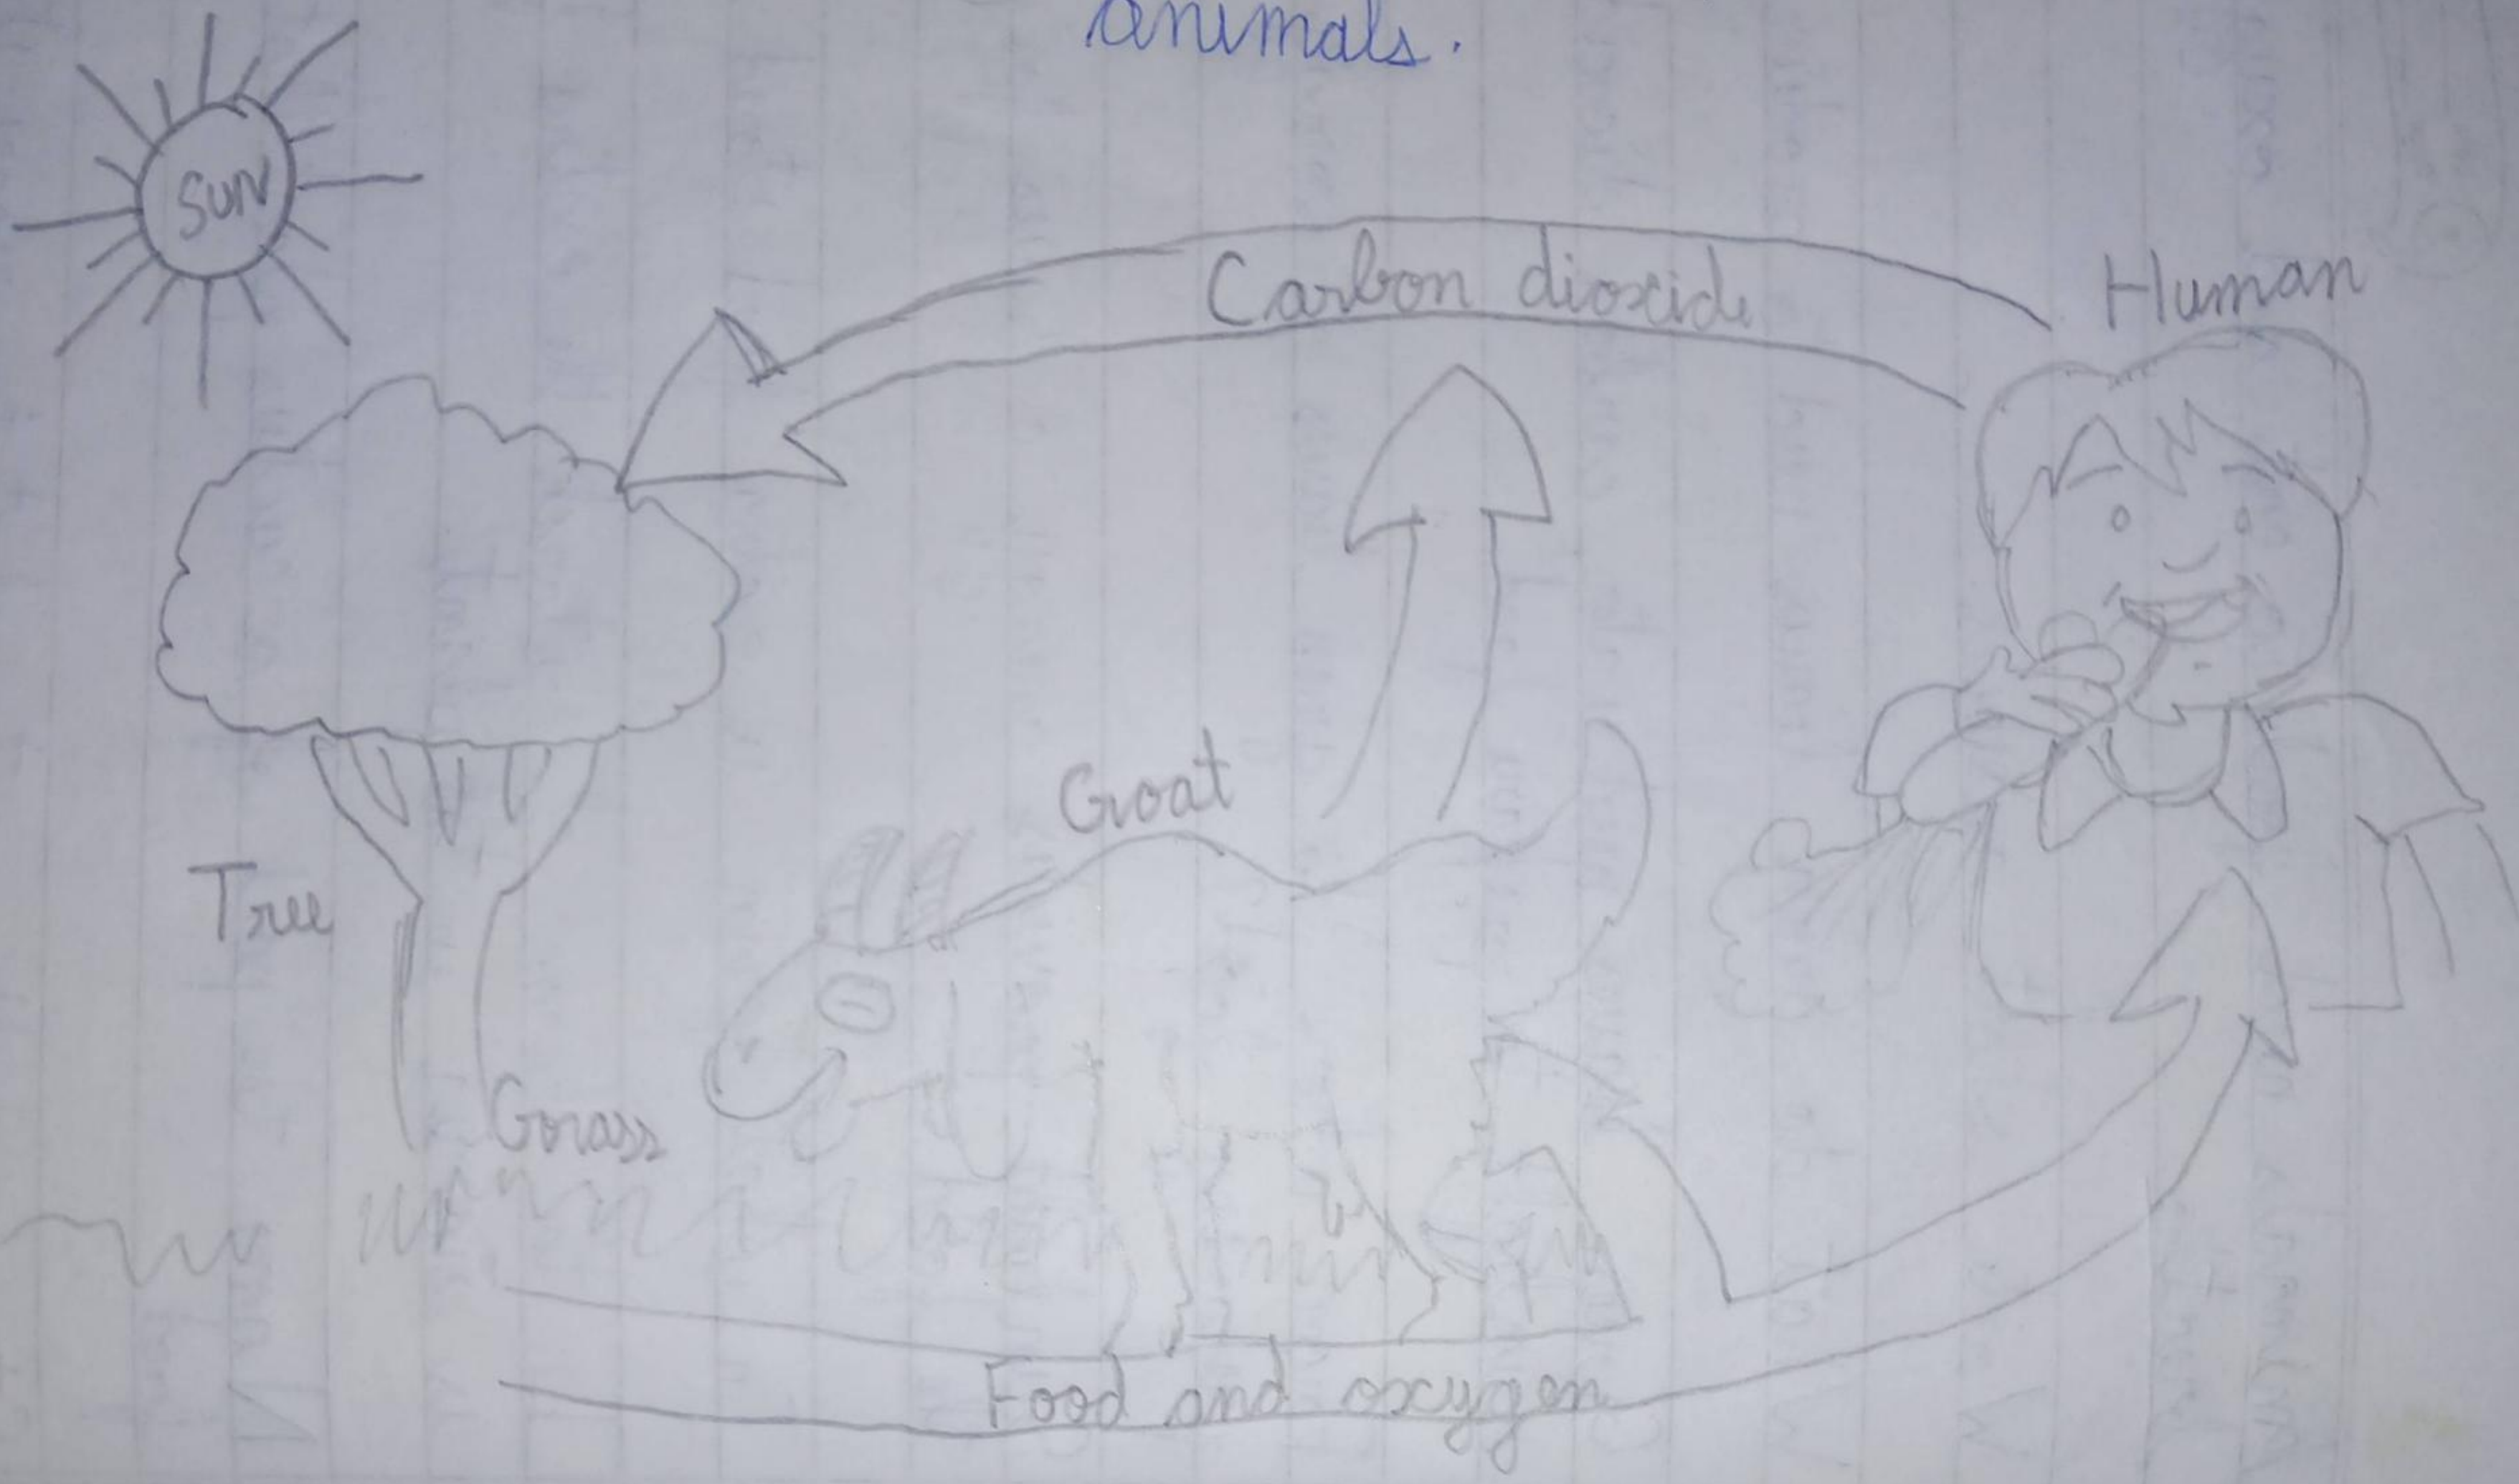 animals.
SUN
Carbon dioxide
Human
Goat
Tree
Grass
Food and oxygen